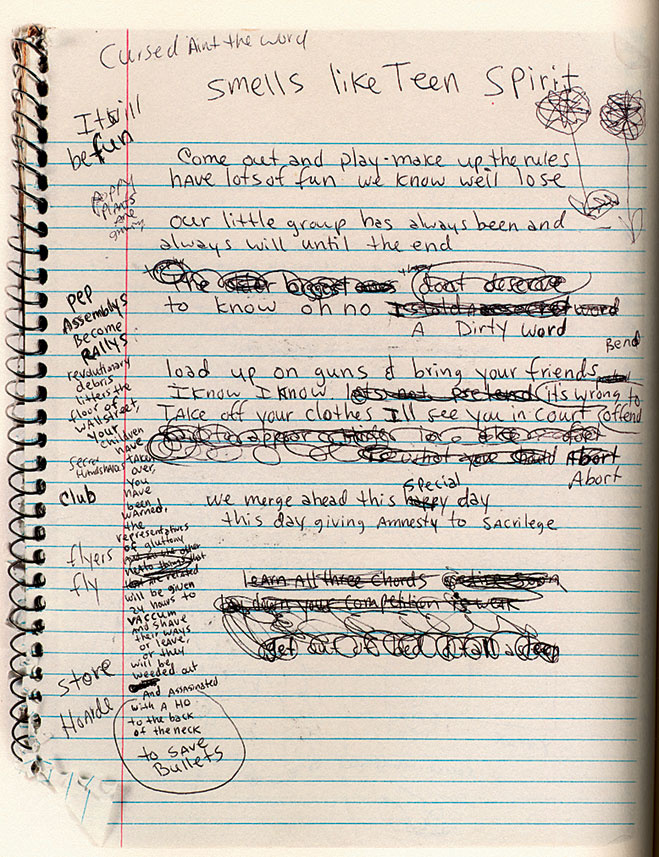 Cursed Aint the word
smells like Teen Spirit
It will
be fun
Come out and play-make up the rules
have lots of fun we know we'll lose
Poppy
Plants
are
our little group has always been and
always will until the end
The
dont deserve
to know oh no
word
A Dirty word
Bend
pep
Assemblys
Become
RALLYs
revolutionary
debris
litters the
floor of
wallstreet,
your
children
have
taken
over,
you
have
been
warned,
the
representatives
of gluttony
will be given
24 hours to
vaccum
and shave
their ways
or leave,
or they
will be
weeded out
And Assasinated
with A Ho
to the back
of the neck
to SAVE
Bullets
load up on guns & bring your friends
I know I know lets not pretend its wrong to
offend
TAKE off your clothes I'll see you in court
what you should Abort
Abort
secret
Handshakes
club
special
we merge ahead this happy day
this day giving Amnesty to SACRILEGE
flyers
fly
learn All three chords
down your competition
get out of bed
store
Hoarde